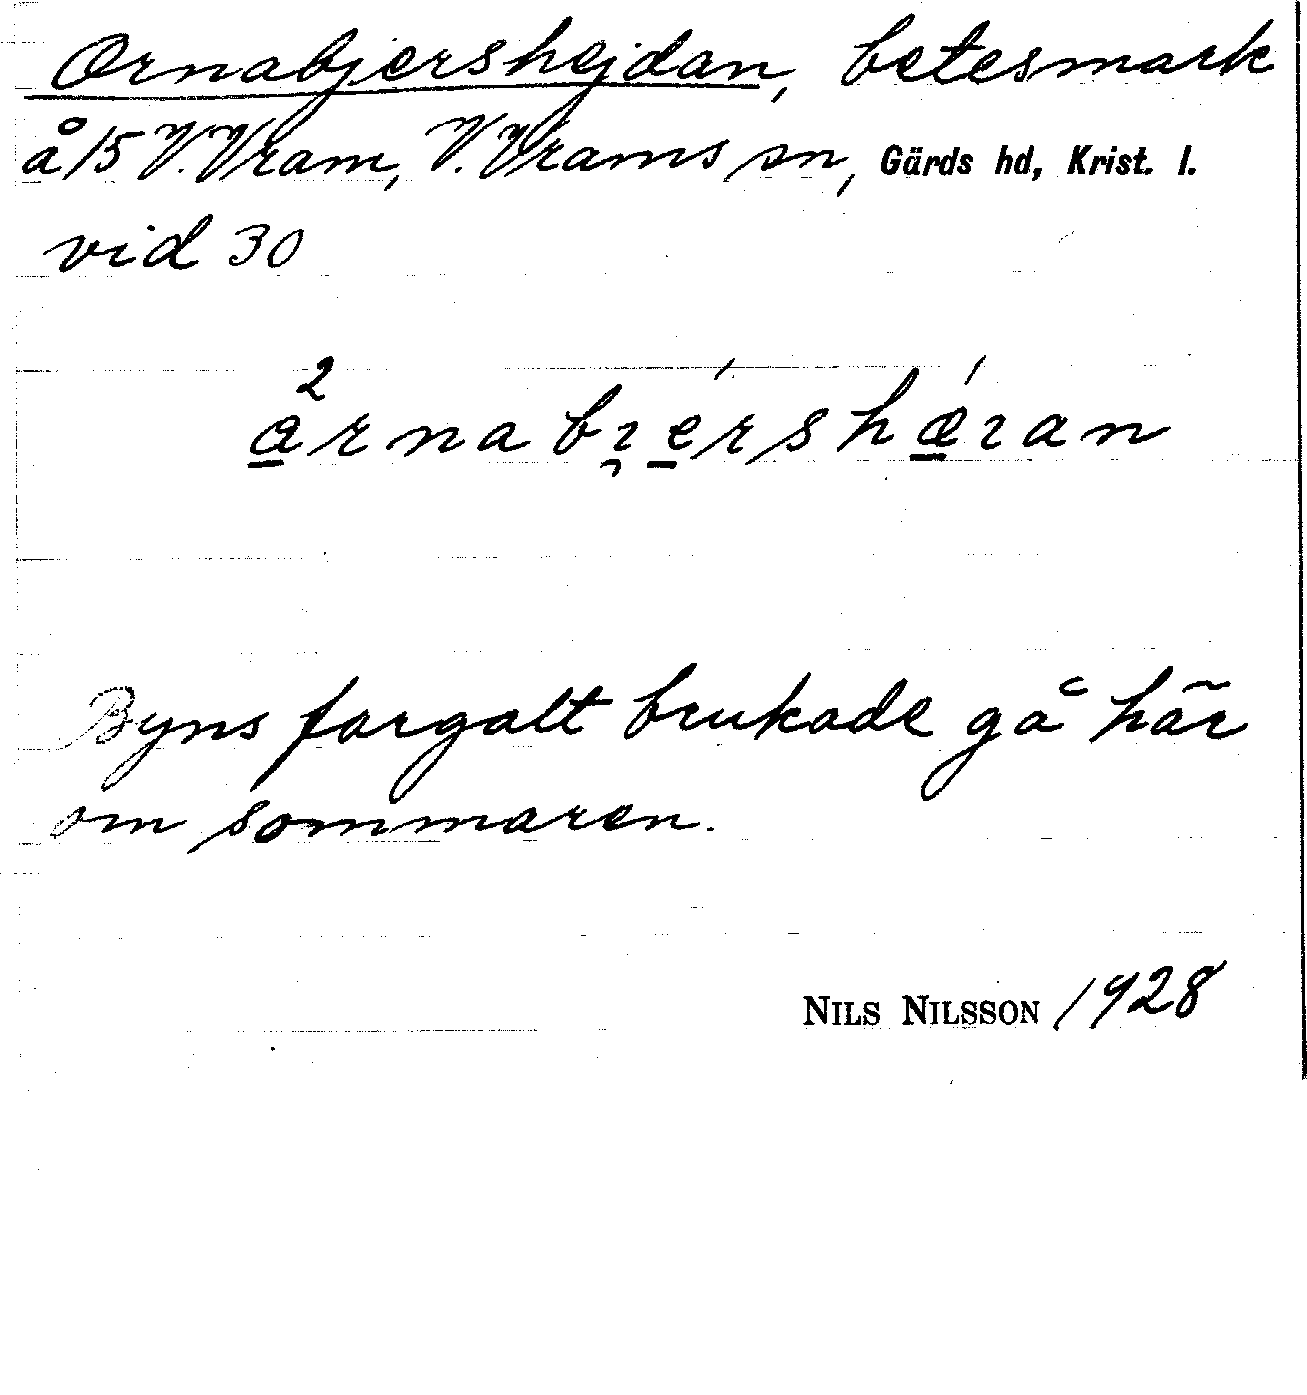 Ornabjershejdan, betesmark
å 15 V. Vram, V. Vrams sn, Gärds hd, Krist. l.
vid 30
a̱²rnabı̯é̱rshǽ̱ıan
Byns fargalt brukade gå här
om sommaren.
NILS NILSSON 1928